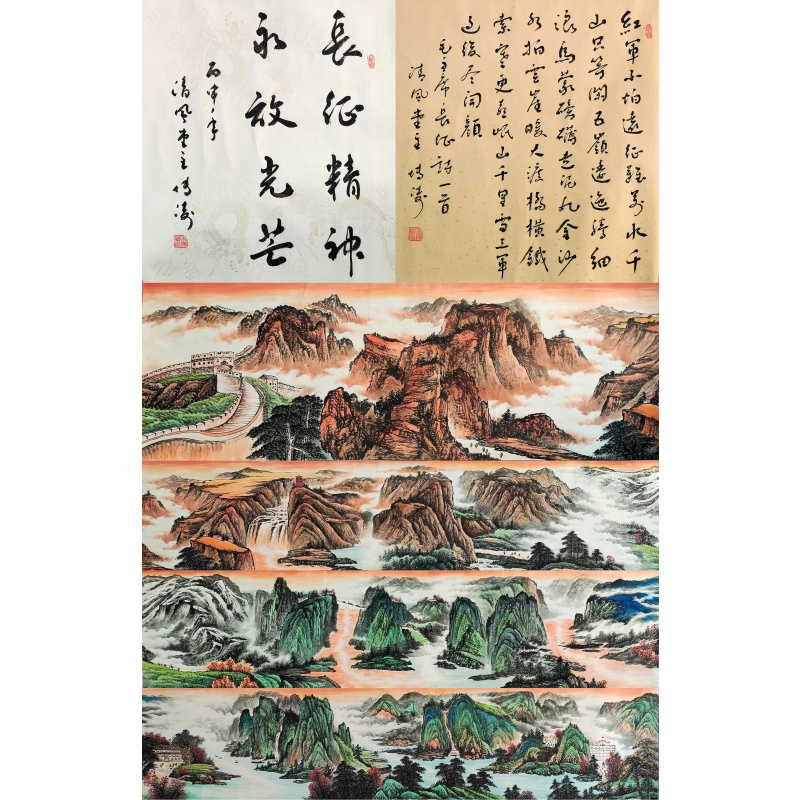 紅軍不怕遠征難萬水千
山只等閑五嶺逶迤騰細
浪烏蒙磅礴走泥丸金沙
水拍雲崖暖大渡橋橫鐵
索寒更喜岷山千里雪三軍
過後尽開顏
毛主席長征詩一首
清風堂主
長征精神
永放光芒
丙申年
清風堂主